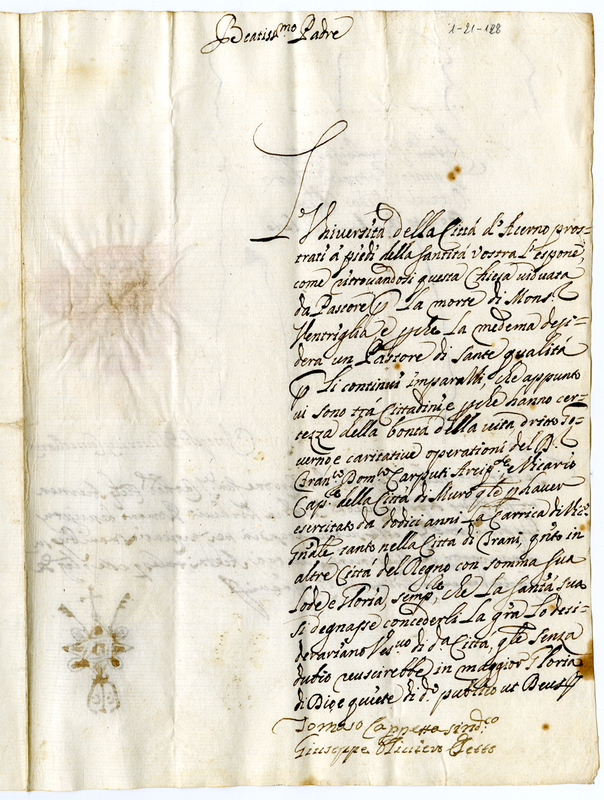 Beatiss.mo Padre
1-21-128
L'Università della Città d'Acerno pros-
trati à piedi della Santità Vostra l'espone,
come ritrovandosi questa Chiesa viduata
da Pastore p la morte di Mons.r
Ventriglia, e pche la medema desi-
dera un Pastore di sante qualità
p li continui imparatti, che appunto
vi sono trà Cittadini e pche hanno cer-
tezza della bontà della vita dritto go-
verno e caritative operationi del D.
Fran.co Dom.co Carputi Arcip.te Vicario
Cap.e della Città di Muro, qle p haver
esercitato da dodici anni la carrica di Vic.o
Gn̄ale tanto nella Città di Trani, qn̄to in
altre Città del Regno con somma sua
lode e gloria, sempl.e, che la Santà sua
si degnasse concederli la grã. Lo desi-
derariano Vesc.vo di d.a Città, qle senza
dubio reuscirebbe in maggior gloria
di Dio, e quiete di d.o publico ut Deus
Tomaso Cappetta sind.co
Giuseppe eletto